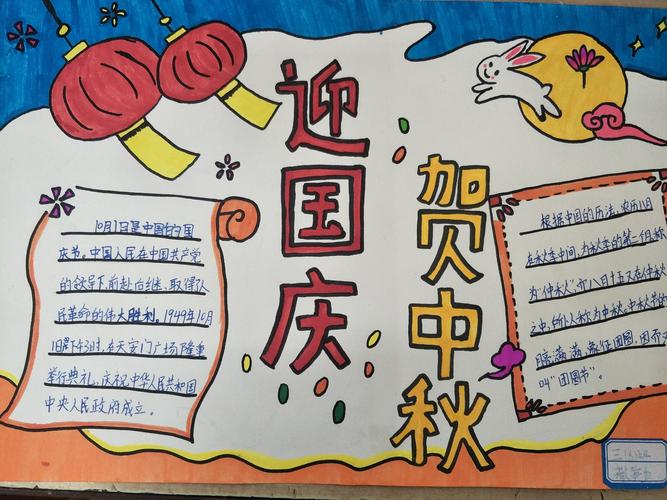 迎国庆
贺中秋
10月1日是中国的国
庆节。中国人民在中国共产党
的领导下前赴后继、取得人
民革命的伟大胜利。1949年10月
1日下午3时,在天安门广场隆重
举行典礼,庆祝中华人民共和国
中央人民政府成立。
根据中国的历法、农历八月
在秋季中间,为秋季的第二个月,称
为"仲秋",而八月十五又在仲秋
之中,所以称为中秋,中秋节
满满,象征团圆,因
叫"团圆节"。